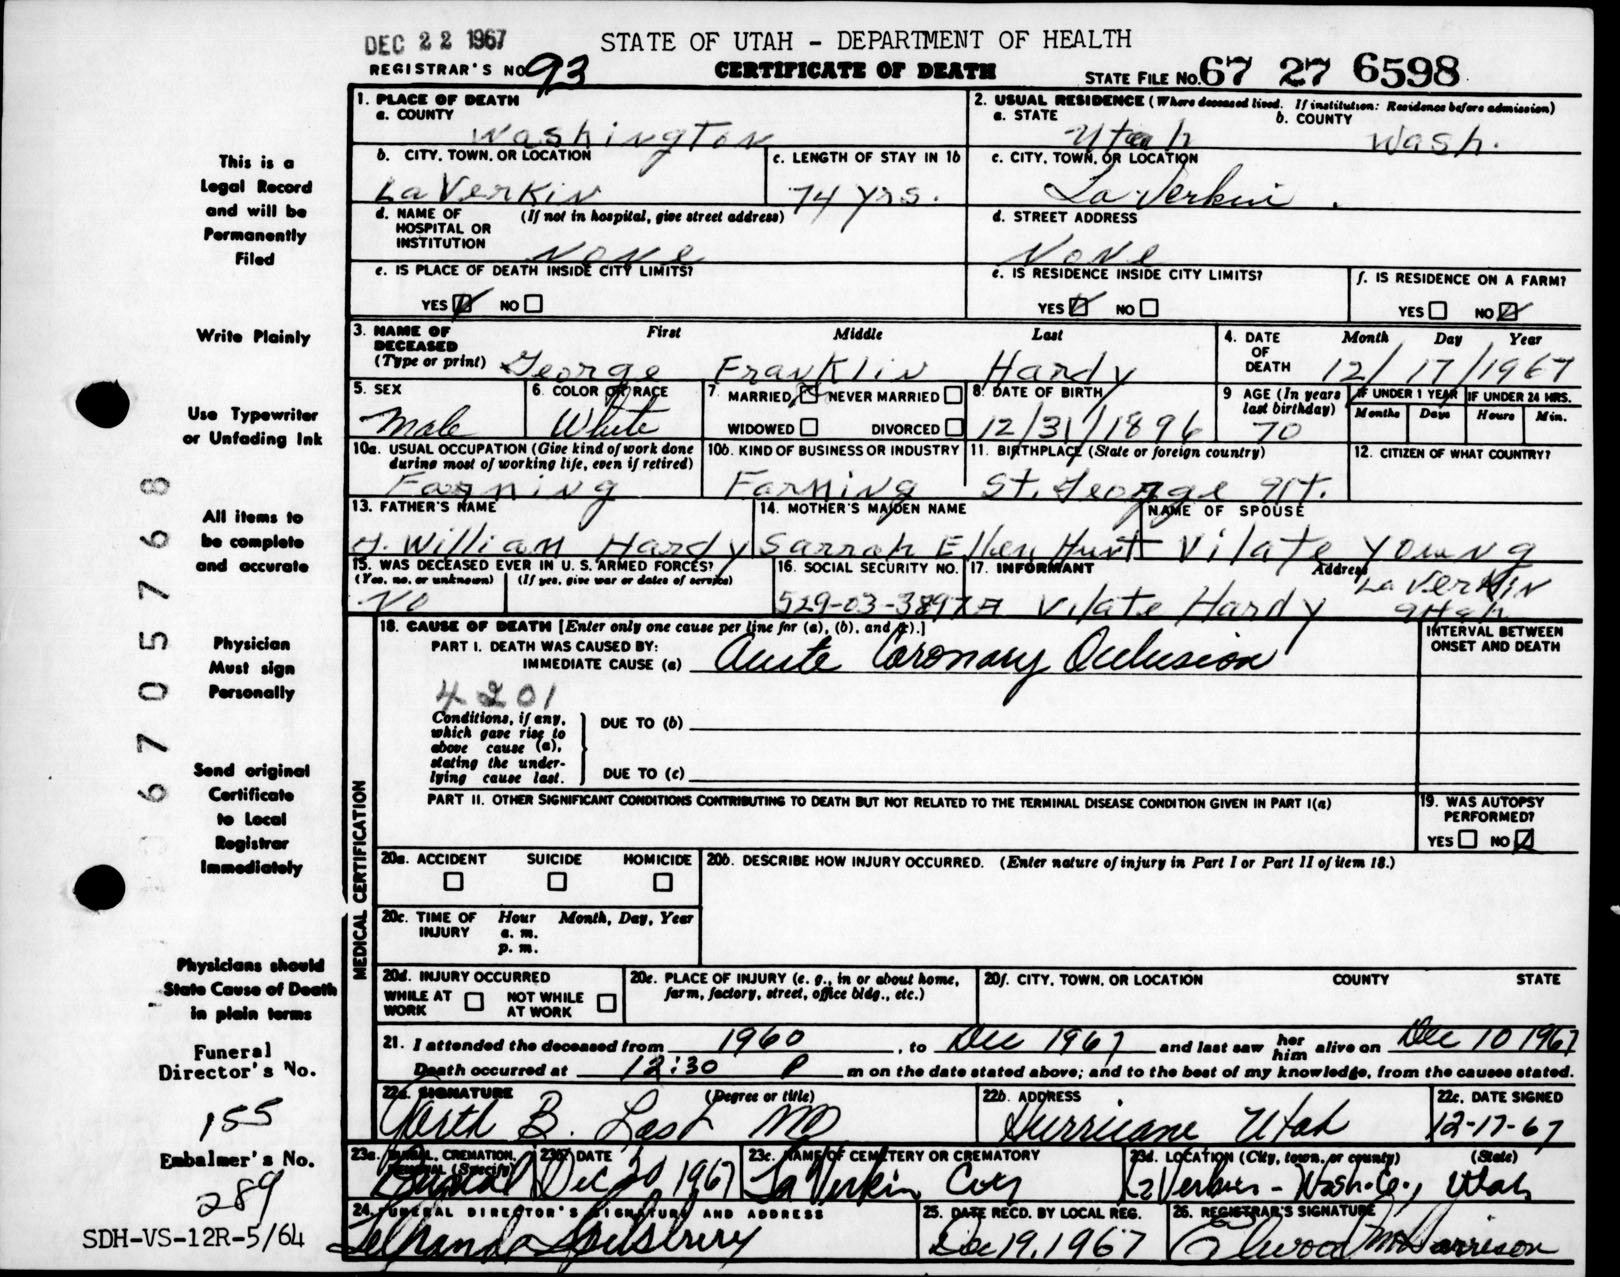 DEC 22 1967
STATE OF UTAH - DEPARTMENT OF HEALTH
REGISTRAR'S NO. 93
CERTIFICATE OF DEATH
STATE FILE NO. 67 27 6598
1. PLACE OF DEATH
a. COUNTY
Washington
2. USUAL RESIDENCE (Where deceased lived. If institution: Residence before admission)
a. STATE
Utah
b. COUNTY
Wash.
b. CITY, TOWN, OR LOCATION
LaVerkin
c. LENGTH OF STAY IN 1b
74 yrs.
c. CITY, TOWN, OR LOCATION
La Verkin
d. NAME OF HOSPITAL OR INSTITUTION (If not in hospital, give street address)
None
d. STREET ADDRESS
None
e. IS PLACE OF DEATH INSIDE CITY LIMITS?
YES NO
e. IS RESIDENCE INSIDE CITY LIMITS?
YES NO
f. IS RESIDENCE ON A FARM?
YES NO
3. NAME OF DECEASED (Type or print)
First Middle Last
George Franklin Hardy
4. DATE OF DEATH
Month Day Year
12/17/1967
5. SEX
Male
6. COLOR OR RACE
White
7. MARRIED NEVER MARRIED
WIDOWED DIVORCED
8. DATE OF BIRTH
12/31/1896
9 AGE (In years last birthday)
70
IF UNDER 1 YEAR
Months Days
IF UNDER 24 HRS.
Hours Min.
10a. USUAL OCCUPATION (Give kind of work done during most of working life, even if retired)
Farming
10b. KIND OF BUSINESS OR INDUSTRY
Farming
11. BIRTHPLACE (State or foreign country)
St. George Ut.
12. CITIZEN OF WHAT COUNTRY?
13. FATHER'S NAME
William Hardy
14. MOTHER'S MAIDEN NAME
Sarrah Ellen Hunt
NAME OF SPOUSE
Vilate Young
15. WAS DECEASED EVER IN U. S. ARMED FORCES?
(Yes, no, or unknown) (If yes, give war or dates of service)
No
16. SOCIAL SECURITY NO.
529-03-3897 A
17. INFORMANT Address
Vilate Hardy LaVerkin Utah
MEDICAL CERTIFICATION
18. CAUSE OF DEATH [Enter only one cause per line for (a), (b), and (c).]
INTERVAL BETWEEN ONSET AND DEATH
PART I. DEATH WAS CAUSED BY:
IMMEDIATE CAUSE (a) Acute Coronary Occlusion
4201
Conditions, if any, which gave rise to above cause (a), stating the underlying cause last.
DUE TO (b)
DUE TO (c)
PART II. OTHER SIGNIFICANT CONDITIONS CONTRIBUTING TO DEATH BUT NOT RELATED TO THE TERMINAL DISEASE CONDITION GIVEN IN PART I(a)
19. WAS AUTOPSY PERFORMED?
YES NO
20a. ACCIDENT SUICIDE HOMICIDE
20b. DESCRIBE HOW INJURY OCCURRED. (Enter nature of injury in Part I or Part II of item 18.)
20c. TIME OF INJURY
Hour Month, Day, Year
a. m.
p. m.
20d. INJURY OCCURRED
WHILE AT WORK NOT WHILE AT WORK
20e. PLACE OF INJURY (e. g., in or about home, farm, factory, street, office bldg., etc.)
20f. CITY, TOWN, OR LOCATION COUNTY STATE
21. I attended the deceased from 1960, to Dec 1967 and last saw her him alive on Dec 10 1967
Death occurred at 12:30 P m on the date stated above; and to the best of my knowledge, from the causes stated.
22a. SIGNATURE (Degree or title)
Garth B. Last MD
22b. ADDRESS
Hurricane Utah
22c. DATE SIGNED
12-17-67
23a. BURIAL, CREMATION, REMOVAL (Specify)
Burial
23b. DATE
Dec 20 1967
23c. NAME OF CEMETERY OR CREMATORY
La Verkin City
23d. LOCATION (City, town, or county) (State)
La Verkin - Wash. Co., Utah
24. FUNERAL DIRECTOR'S SIGNATURE AND ADDRESS
Spilsbury
25. DATE RECD. BY LOCAL REG.
Dec 19, 1967
26. REGISTRAR'S SIGNATURE
Elwood Harrison
This is a
Legal Record
and will be
Permanently
Filed
Write Plainly
Use Typewriter
or Unfading Ink
All items to
be complete
and accurate
Physician
Must sign
Personally
Send original
Certificate
to Local
Registrar
Immediately
Physicians should
State Cause of Death
in plain terms
Funeral
Director's No.
155
Embalmer's No.
289
SDH-VS-12R-5/64
67057668